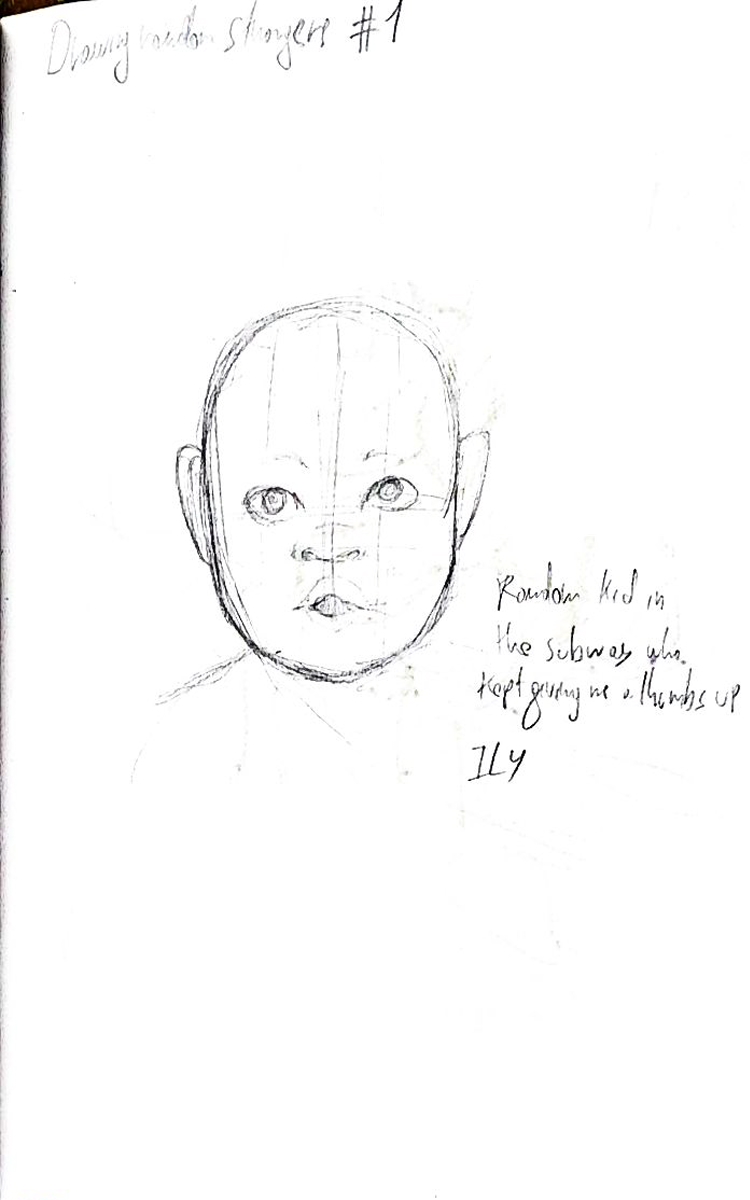 Drawing random strangers #1
Random kid in
the subway who
kept giving me a thumbs up
ILY